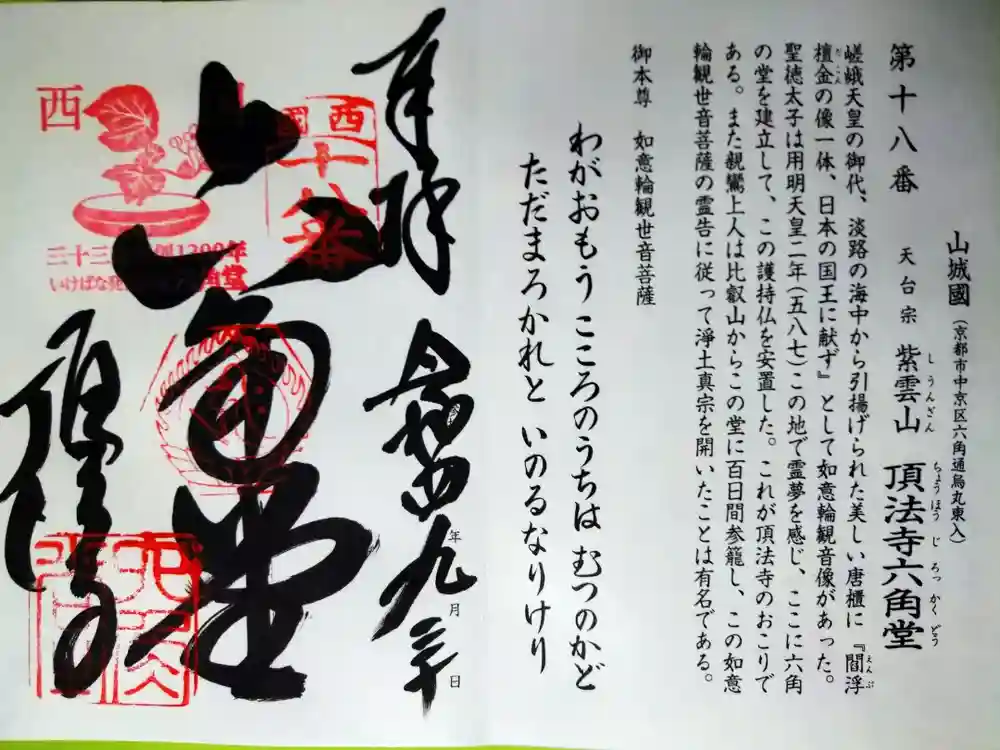 第十八番
山城國(京都市中京区六角通烏丸東入)
天台宗 紫雲山 頂法寺六角堂
しうんざん ちょうほうじろっかくどう
嵯峨天皇の御代、淡路の海中から引揚げられた美しい唐櫃に『閻浮
檀金の像一体、日本の国王に献ず』として如意輪観音像があった。
聖徳太子は用明天皇二年(五八七)この地で霊夢を感じ、ここに六角
の堂を建立して、この護持仏を安置した。これが頂法寺のおこりで
ある。また親鸞上人は比叡山からこの堂に百日間参籠し、この如意
輪観世音菩薩の霊告に従って淨土真宗を開いたことは有名である。
御本尊 如意輪観世音菩薩
わがおもう こころのうちは むつのかど
ただまろかれと いのるなりけり
奉拝
年 月 日
西国
十八番
六角堂
頂法寺
西